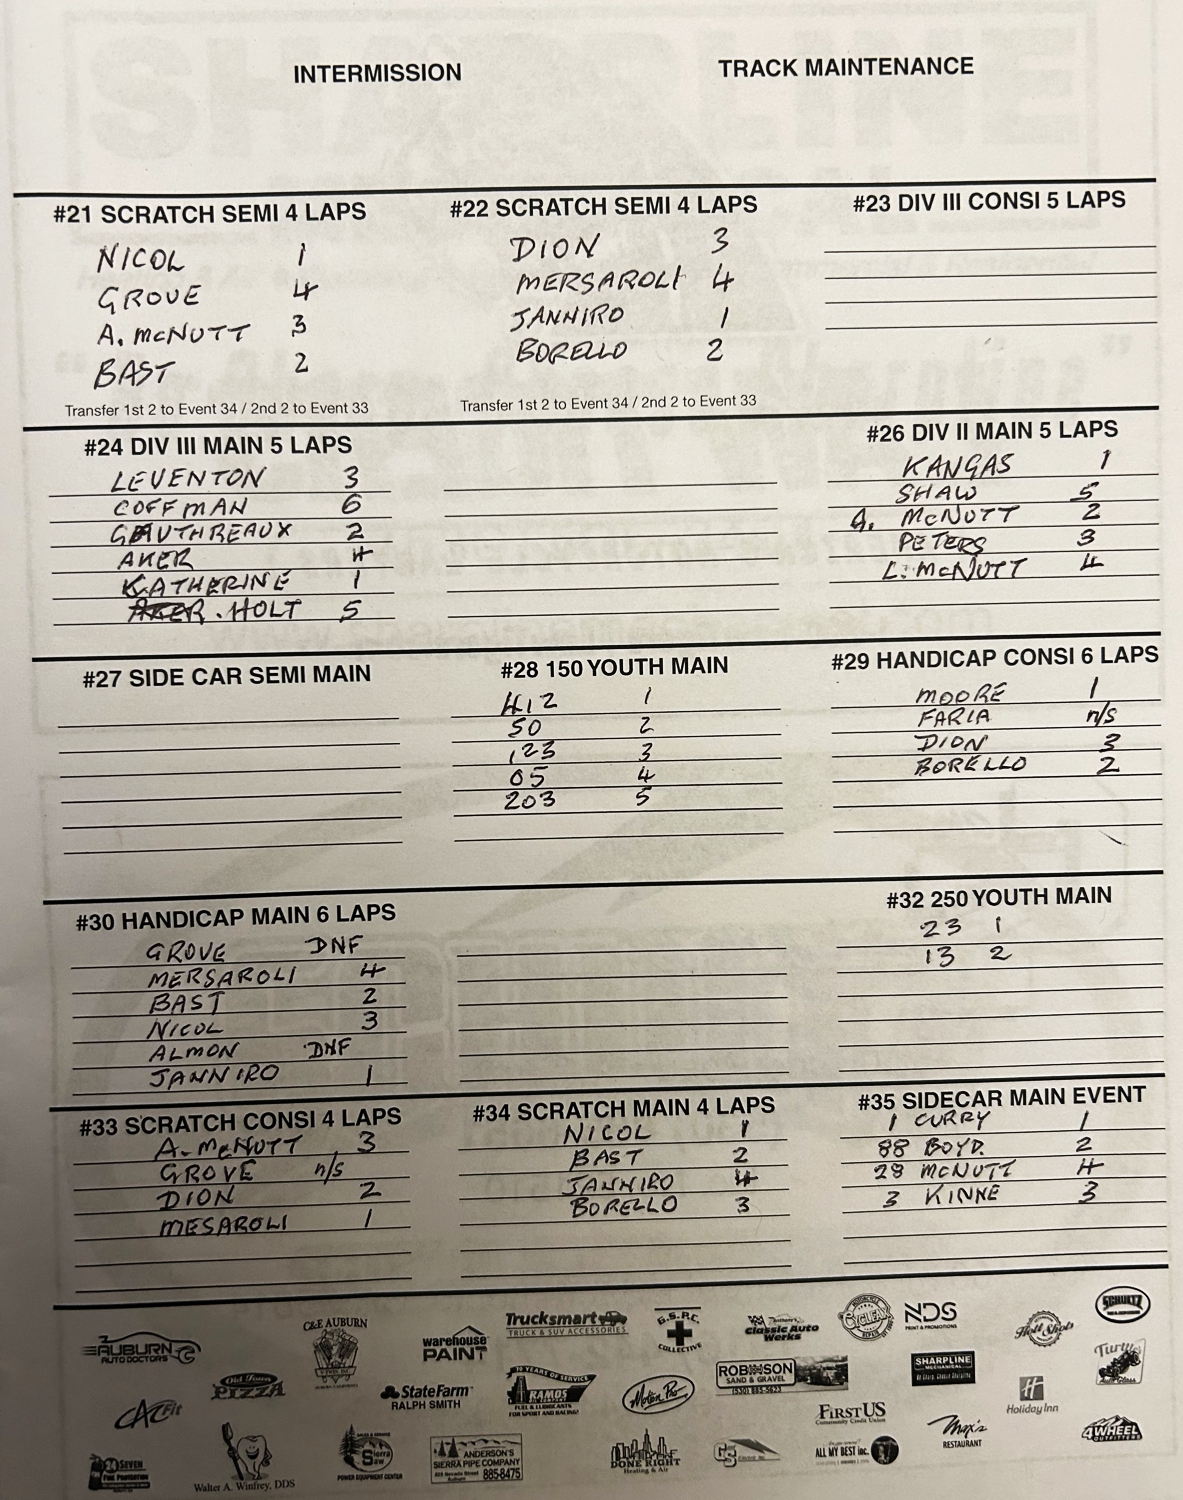 INTERMISSION
TRACK MAINTENANCE
#21 SCRATCH SEMI 4 LAPS
NICOL 1
GROVE 4
A. McNUTT 3
BAST 2
Transfer 1st 2 to Event 34 / 2nd 2 to Event 33
#22 SCRATCH SEMI 4 LAPS
DION 3
MERSAROLI 4
JANNIRO 1
BORELLO 2
Transfer 1st 2 to Event 34 / 2nd 2 to Event 33
#23 DIV III CONSI 5 LAPS
#24 DIV III MAIN 5 LAPS
LEVENTON 3
COFFMAN 6
GAUTHREAUX 2
AKER 4
KATHERINE 1
HOLT 5
#26 DIV II MAIN 5 LAPS
KANGAS 1
SHAW 5
McNUTT 2
PETERS 3
L. McNUTT 4
#27 SIDE CAR SEMI MAIN
#28 150 YOUTH MAIN
412 1
50 2
123 3
05 4
203 5
#29 HANDICAP CONSI 6 LAPS
MOORE 1
FARIA n/s
DION 3
BORELLO 2
#30 HANDICAP MAIN 6 LAPS
GROVE DNF
MERSAROLI 4
BAST 2
NICOL 3
ALMON DNF
JANNIRO 1
#32 250 YOUTH MAIN
23 1
13 2
#33 SCRATCH CONSI 4 LAPS
A. McNUTT 3
GROVE n/s
DION 2
MESAROLI 1
#34 SCRATCH MAIN 4 LAPS
NICOL 1
BAST 2
JANNIRO 4
BORELLO 3
#35 SIDECAR MAIN EVENT
1 CURRY 1
88 BOYD 2
28 McNUTT 4
3 KINNE 3
AUBURN
AUTO DOCTORS
C&E AUBURN
warehouse
PAINT
Trucksmart
TRUCK & SUV ACCESSORIES
G.S.P.C.
COLLECTIVE
Classic Auto
Werks
CYCLE
NDS
PRINT & PROMOTIONS
Hot Shots
SCHULTZ
CAL Fit
Old Town
PIZZA
StateFarm
RALPH SMITH
30 YEARS OF SERVICE
RAMOS
FUEL & LUBRICANTS
FOR SPORT AND RACING!
Motion Pro
ROBINSON
SAND & GRAVEL
(530) 885-5633
SHARPLINE
MECHANICAL
Holiday Inn
Auto Glass
FIRST US
Community Credit Union
Max's
RESTAURANT
4WHEEL
OUTFITTERS
24SEVEN
Fire Protection
Walter A. Winfrey, DDS
Sierra
Saw
POWER EQUIPMENT CENTER
ANDERSON'S
SIERRA PIPE COMPANY
Auburn 885-8475
DONE RIGHT
Heating & Air
ALL MY BEST inc.